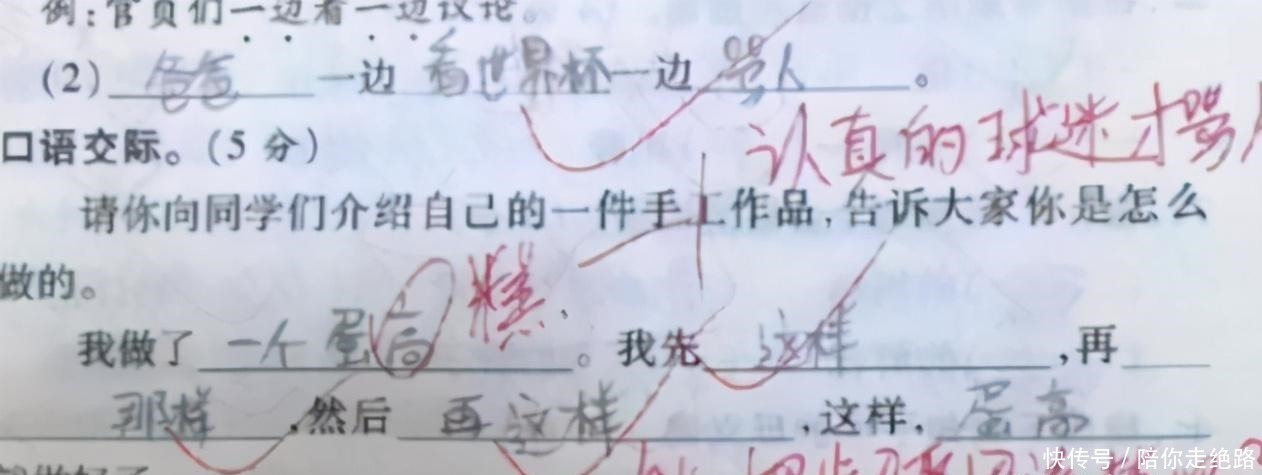 例:官员们一边看一边议论。
(2) 爸爸 一边 看世界杯 一边 骂人 。
认真的球迷才骂人
口语交际。(5 分)
请你向同学们介绍自己的一件手工作品,告诉大家你是怎么
做的。
我做了 一个蛋高 糕 。我先 这样 ,再
那样 ,然后 再这样 ,这样, 蛋高
就做好了
快传号/陪你走绝路